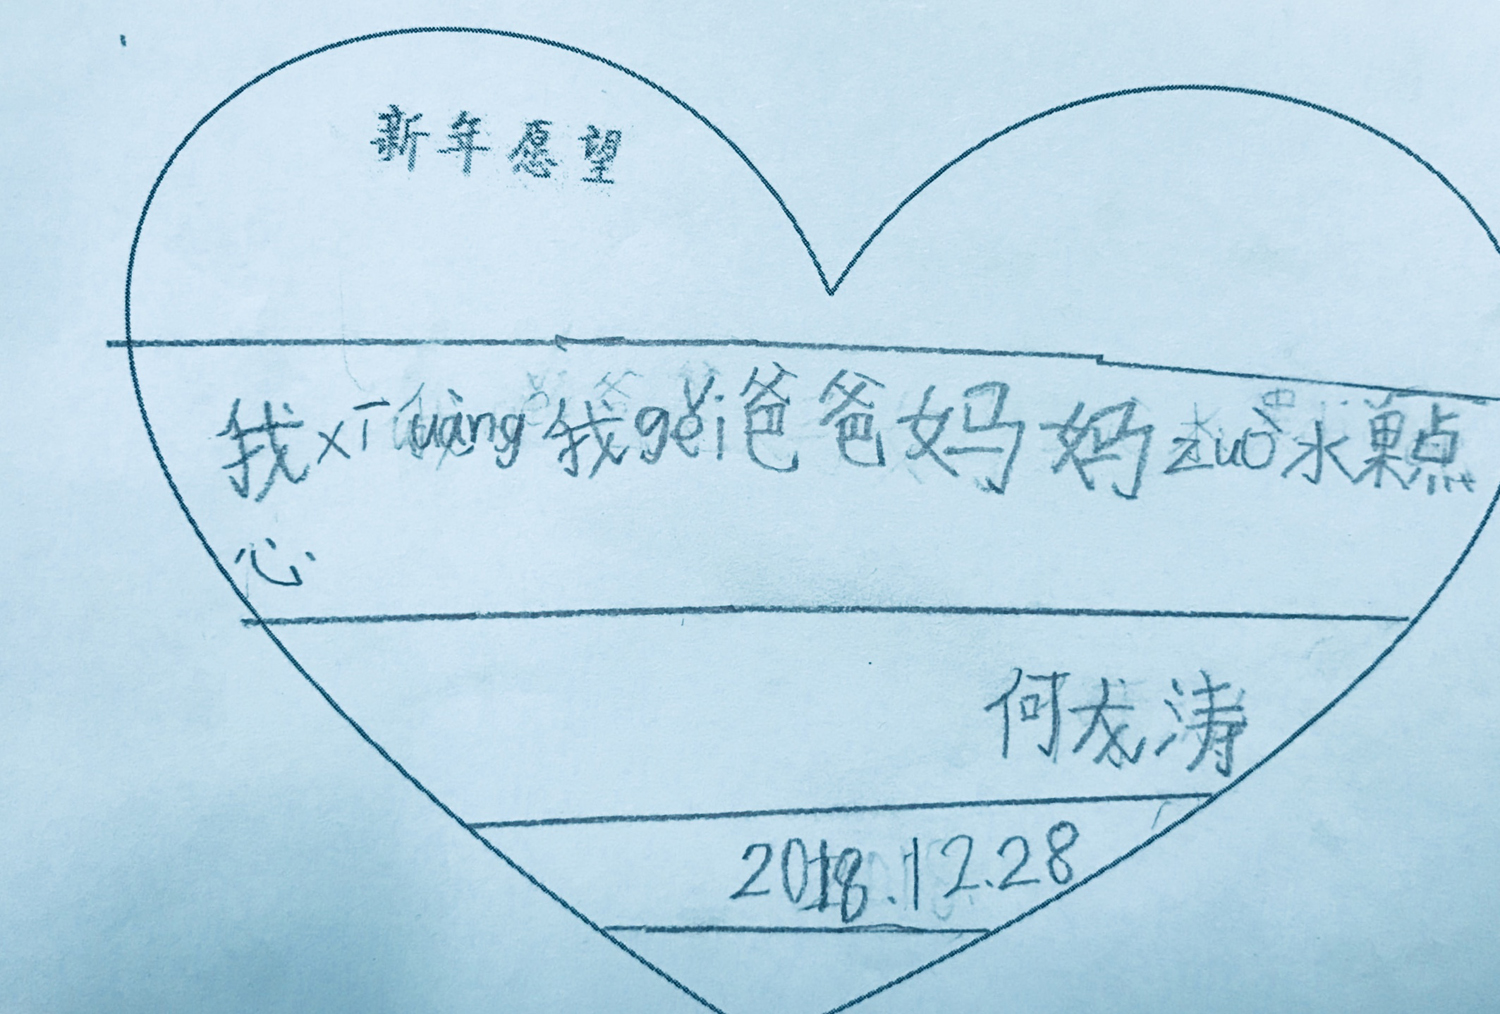 新年愿望
我xī uàng我gěi爸爸妈妈zuò水菓点
心
何龙涛
2018.12.28